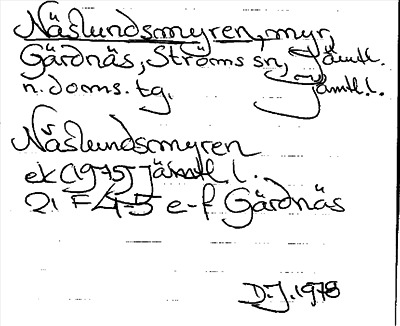 Näslundsmyren, myr,
Gärdnäs, Ströms sn, Jämtl.
n. doms. tg. Jämtl. l.
Näslundsmyren
ek (1975) Jämtl. l.
21 F 4-5 e-f Gärdnäs
D.J. 1978